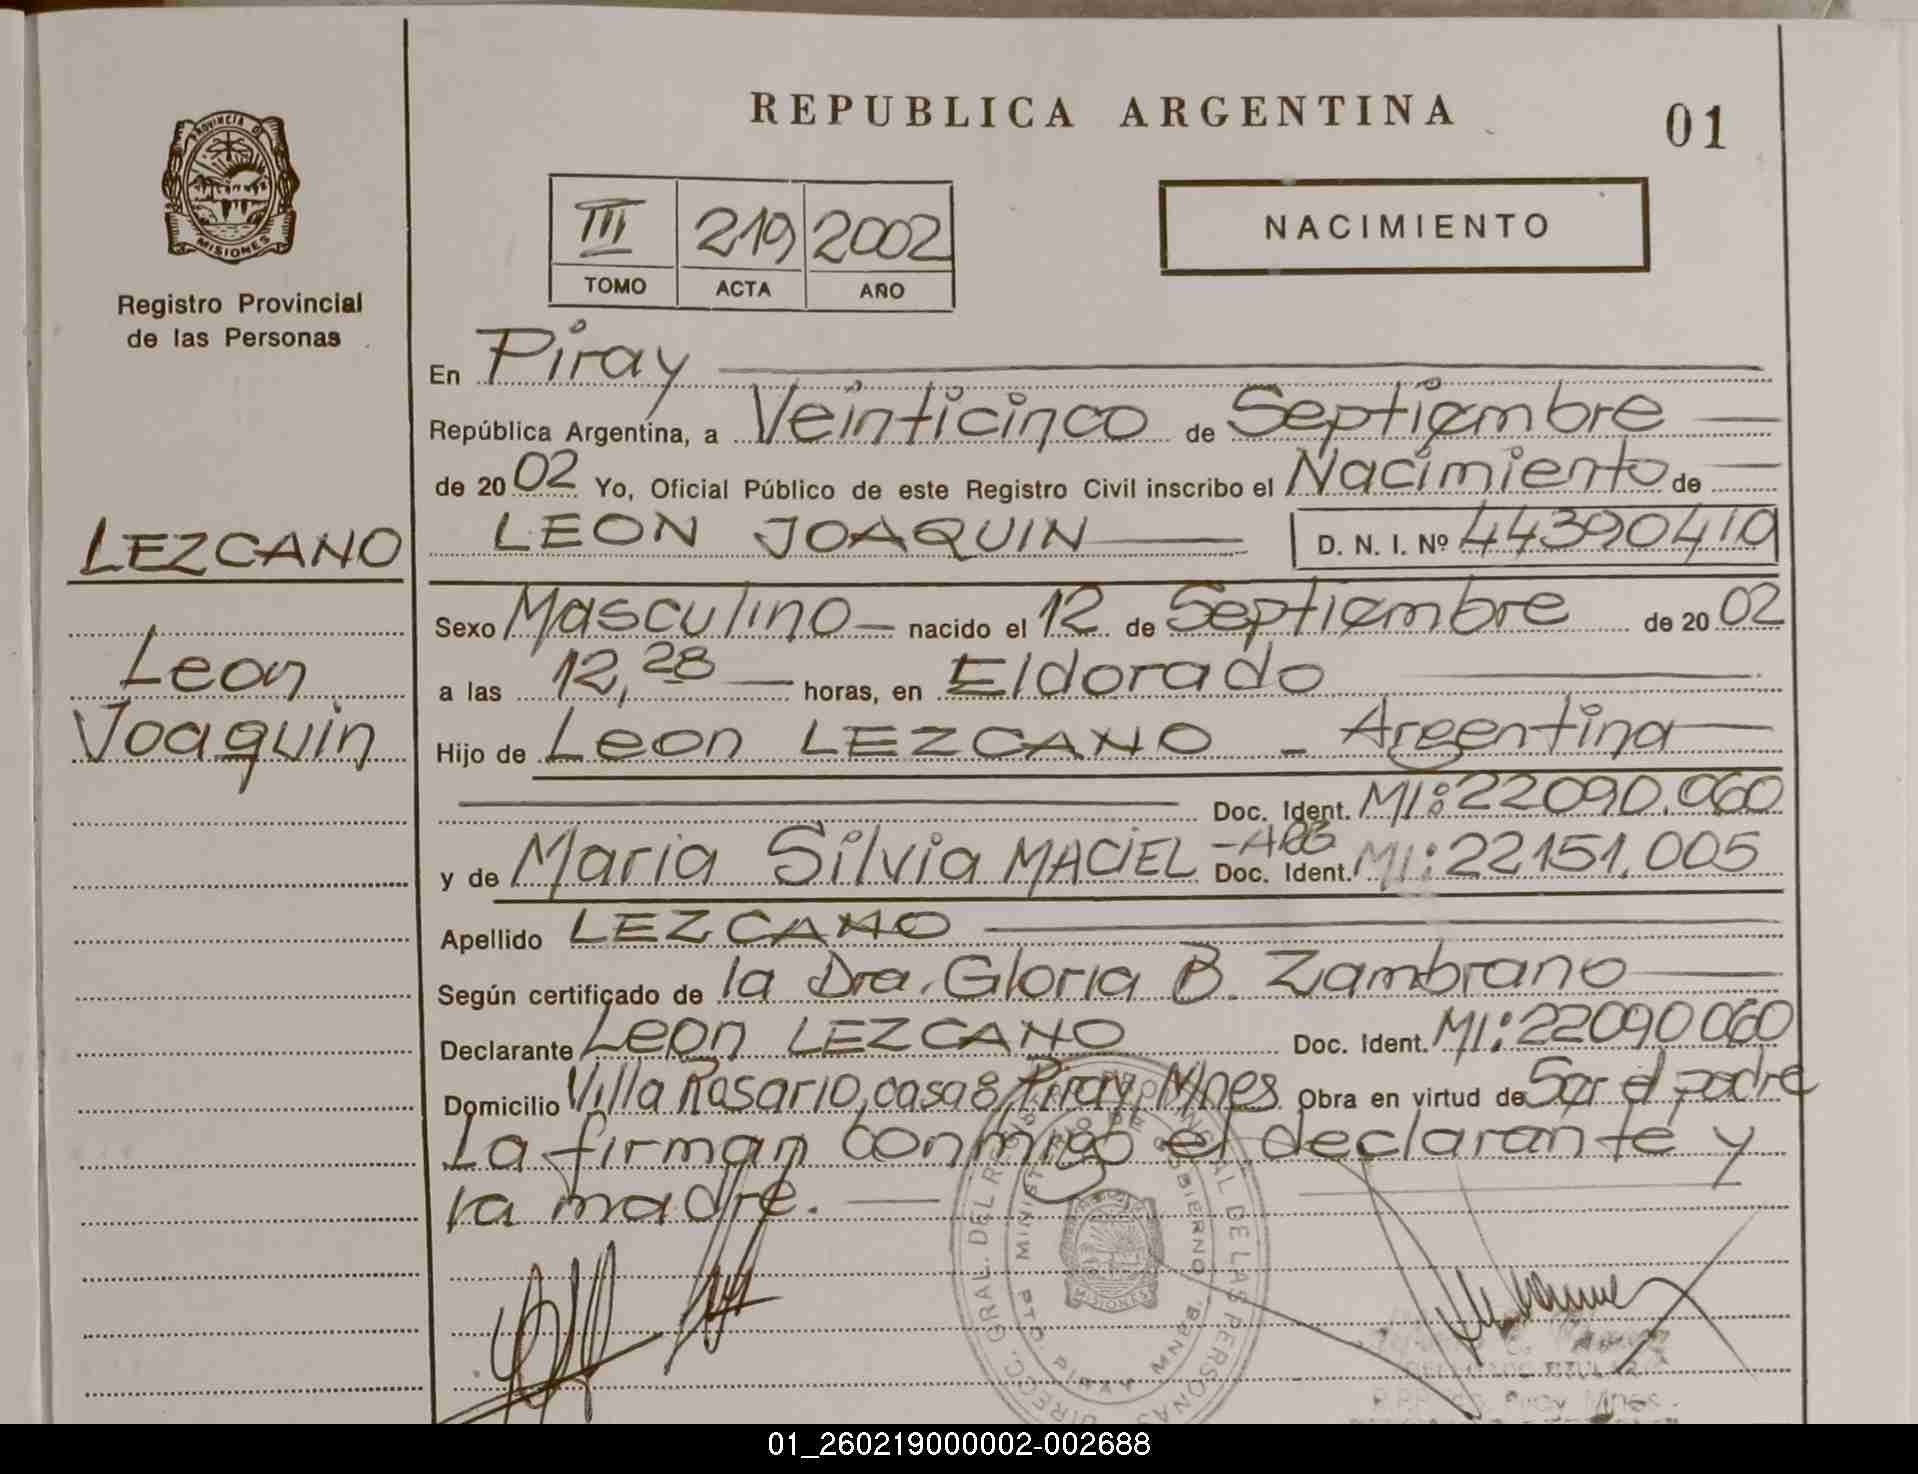 REPUBLICA ARGENTINA
01
PROVINCIA D
MISIONES
Registro Provincial
de las Personas
III 219 2002
TOMO ACTA AÑO
NACIMIENTO
En Piray
República Argentina, a Veinticinco de Septiembre
de 20 02 Yo, Oficial Público de este Registro Civil inscribo el Nacimiento de
LEON JOAQUIN D. N. I. Nº 44390410
LEZCANO
Leon
Joaquin
Sexo Masculino nacido el 12 de Septiembre de 20 02
a las 12,28 horas, en Eldorado
Hijo de Leon LEZCANO - Argentina
Doc. Ident. MI: 22090.060
y de Maria Silvia MACIEL - ARG Doc. Ident. MI: 22151.005
Apellido LEZCANO
Según certificado de la Dra. Gloria B. Zambrano
Declarante Leon LEZCANO Doc. Ident. MI: 22090060
Domicilio Villa Rosario, casa 8 Piray, Mnes Obra en virtud de Ser el padre
La firman conmigo el declarante y
la madre.
DIRECC. GRAL. DEL REGISTRO PROVINCIAL DE LAS PERSONAS
MINISTERIO DE GOBIERNO
PTO. PIRAY MNES.
MISIONES
Piray Mnes.
01_260219000002-002688